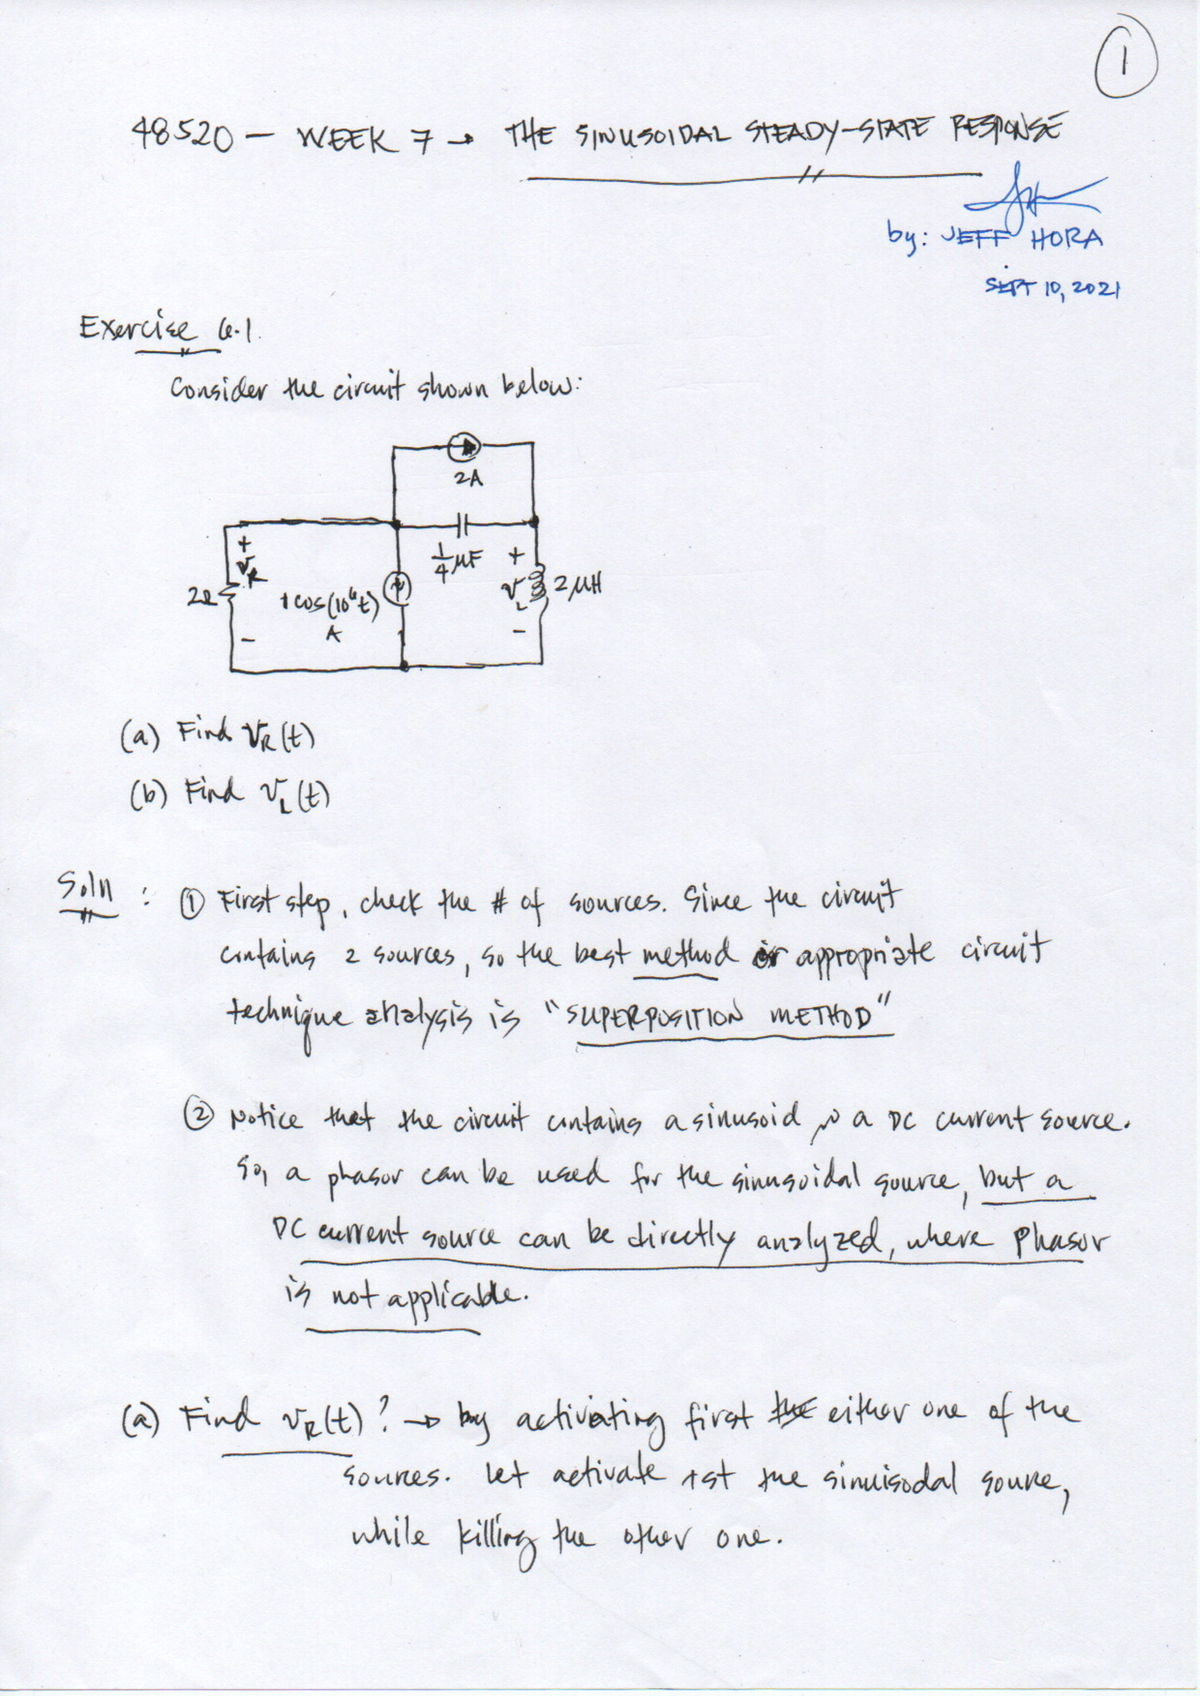 1
48520 – WEEK 7 → THE SINUSOIDAL STEADY-STATE RESPONSE
by: JEFF HORA
SEPT 10, 2021
Exercise 6.1
Consider the circuit shown below:
2A
+
VR
-
1/4 μF
+
VL
-
2Ω
1 cos(10⁶t)
A
2 μH
(a) Find VR(t)
(b) Find VL(t)
Soln : ① First step, check the # of sources. Since the circuit
contains 2 sources, so the best method or appropriate circuit
technique analysis is "SUPERPOSITION METHOD"
② Notice that the circuit contains a sinusoid a DC current source.
So, a phasor can be used for the sinusoidal source, but a
DC current source can be directly analyzed, where phasor
is not applicable.
(a) Find VR(t)? → by activating first the either one of the
sources. Let activate 1st the sinuisodal source,
while killing the other one.